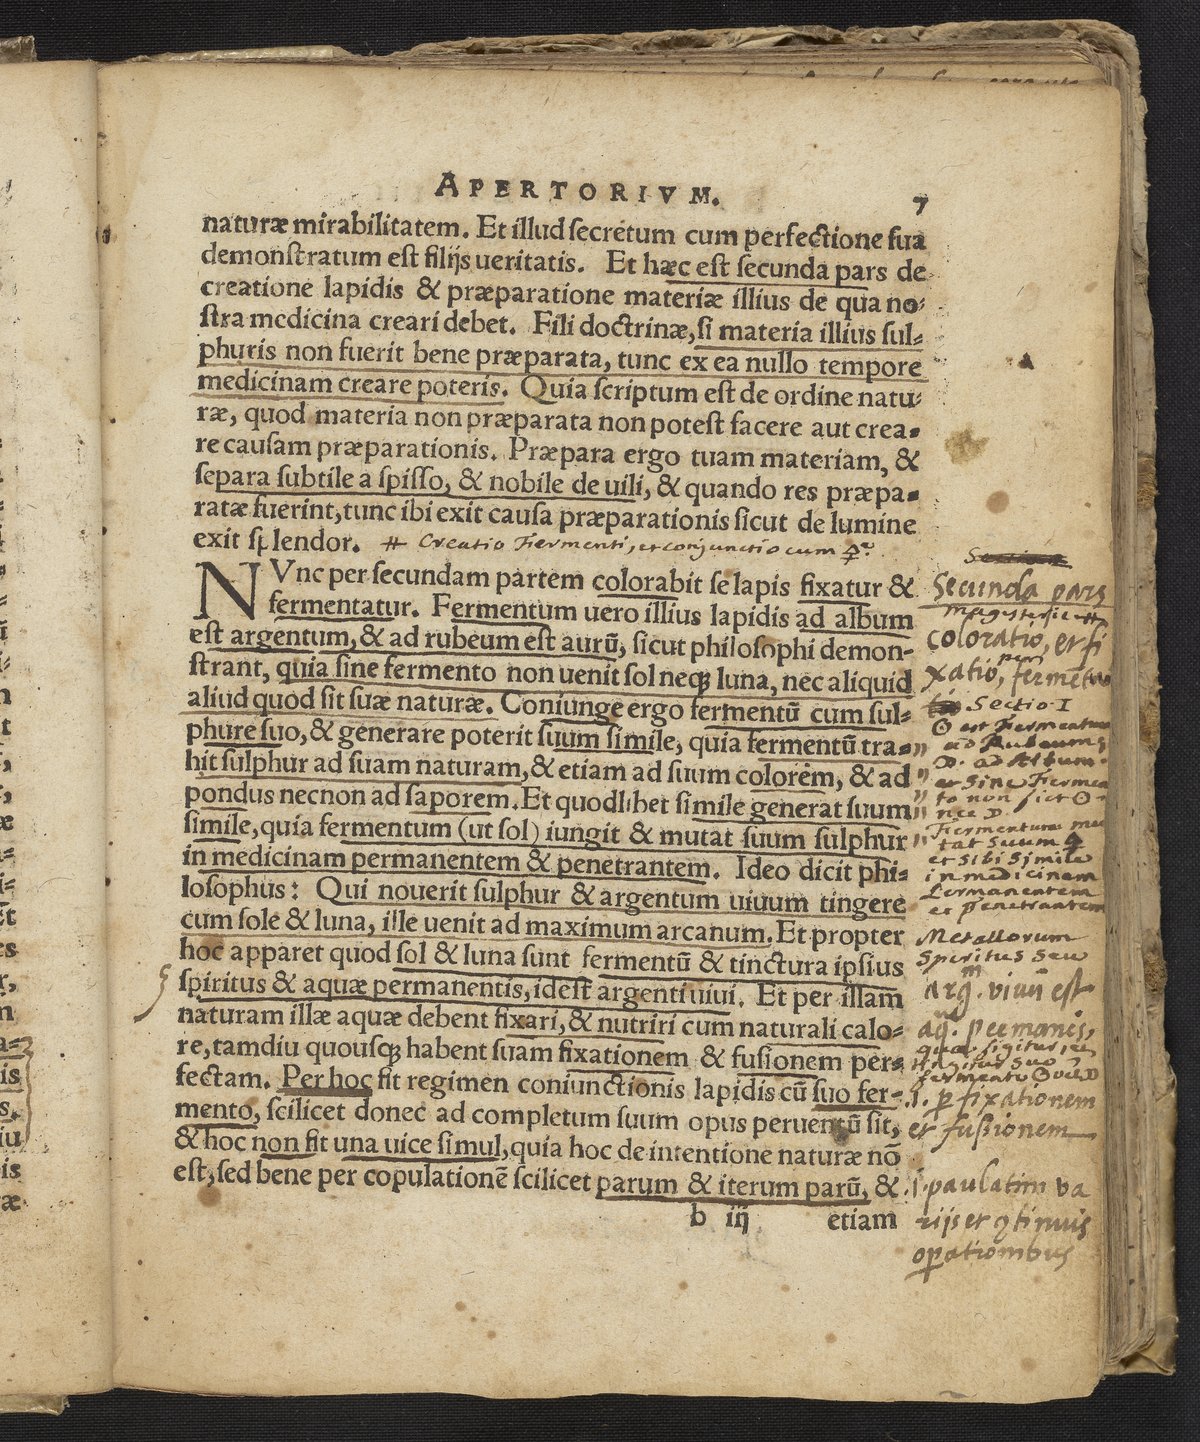 APERTORIVM. 7
naturæ mirabilitatem. Et illud ſecretum cum perfectione ſua
demonſtratum eſt filijs ueritatis. Et hæc eſt ſecunda pars de
creatione lapidis & præparatione materiæ illius de qua no-
ſtra medicina creari debet. Fili doctrinæ, ſi materia illius ſul-
phuris non fuerit bene præparata, tunc ex ea nullo tempore
medicinam creare poteris. Quia ſcriptum eſt de ordine natu-
ræ, quod materia non præparata non poteſt facere aut crea-
re cauſam præparationis. Præpara ergo tuam materiam, &
ſepara ſubtile a ſpiſſo, & nobile de uili, & quando res præpa-
ratæ fuerint, tunc ibi exit cauſa præparationis ſicut de lumine
exit ſplendor. # Creatio Fermenti, et conjunctio cum
NVnc per ſecundam partem colorabit ſe lapis fixatur &
fermentatur. Fermentum uero illius lapidis ad album
eſt argentum, & ad rubeum eſt aurũ, ſicut philoſophi demon-
ſtrant, quia ſine fermento non uenit ſol neqꝫ luna, nec aliquid
aliud quod ſit ſuæ naturæ. Coniunge ergo fermentũ cum ſul-
phure ſuo, & generare poterit ſuum ſimile, quia fermentũ tra-
hit ſulphur ad ſuam naturam, & etiam ad ſuum colorem, & ad
pondus necnon ad ſaporem. Et quodlibet ſimile generat ſuum
ſimile, quia fermentum (ut ſol) iungit & mutat ſuum ſulphur
in medicinam permanentem & penetrantem. Ideo dicit phi-
loſophus: Qui nouerit ſulphur & argentum uiuum tingere
cum ſole & luna, ille uenit ad maximum arcanum. Et propter
hoc apparet quod ſol & luna ſunt fermentũ & tinctura ipſius
ſpiritus & aquæ permanentis, ideſt argenti uiui. Et per illam
naturam illæ aquæ debent fixari, & nutriri cum naturali calo-
re, tamdiu quouſqꝫ habent ſuam fixationem & fuſionem per-
fectam. Per hoc fit regimen coniunctionis lapidis cũ ſuo fer-
mento, ſcilicet donec ad completum ſuum opus peruentũ ſit,
& hoc non fit una uice ſimul, quia hoc de intentione naturæ nõ
eſt, ſed bene per copulationẽ ſcilicet parum & iterum parũ, &
b iij etiam
Secunda pars
coloratio, et fi
xatio, fermẽta
Sectio. I
☉ est Fermentum
ad Rubeum,
☽. ad Album.
et sine Fermen
to non fiet ☉
nec ☽.
Fermentum mu
tat suum 🜍
et sibi simile
in medicinam
permanentem
et penetrantem
Metallorum
Spiritus seu
arg. viuũ est
aq. permanẽs,
fermento ☉ vel ☽
.i. p fixationem
et fusionem
.i. paulatim va
rijs et ꝯtinuis
opationibus